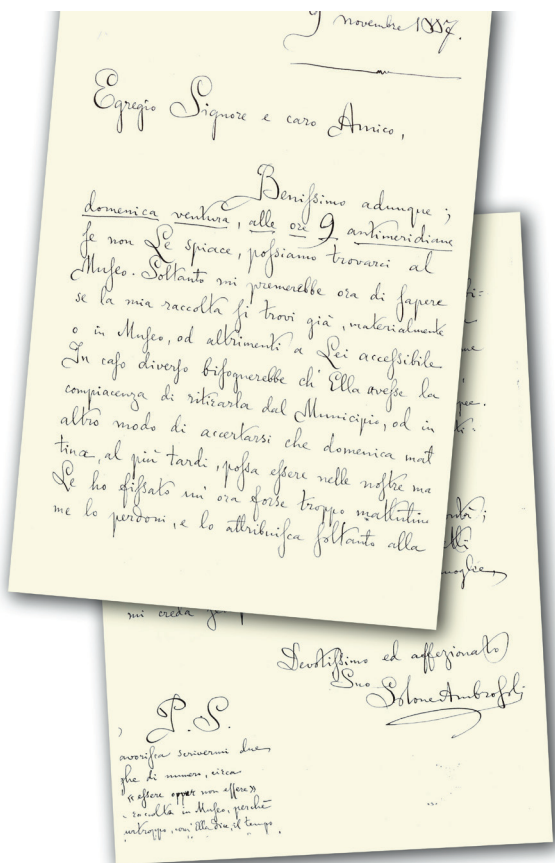 9 novembre 1887.
Egregio Signore e caro Amico,
Benissimo adunque;
domenica ventura, alle ore 9 antimeridiane
se non Le spiace, possiamo trovarci al
Museo. Soltanto mi premerebbe ora di sapere
se la mia raccolta si trovi già, materialmente
o in Museo, od altrimenti a Lei accessibile
In caso diverso bisognerebbe ch' Ella avesse la
compiacenza di ritirarla dal Municipio, od in
altro modo di accertarsi che domenica mat
tina, al più tardi, possa essere nelle nostre ma
Le ho fissato un' ora forse troppo mattutina
me lo perdoni, e lo attribuisca soltanto alla
moglie,
mi creda
Devotissimo ed affezionato
Suo Solone Ambrosoli
P.S.
avorisca scrivermi due
ghe di numero, circa
« essere oppur non essere »
raccolta in Museo, perchè
urtroppo, com' Ella dice, il tempo